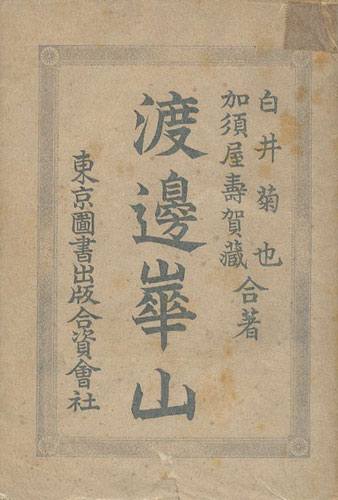 白井菊也
加須屋壽賀藏
合著
渡邊崋山
東京圖書出版合資會社